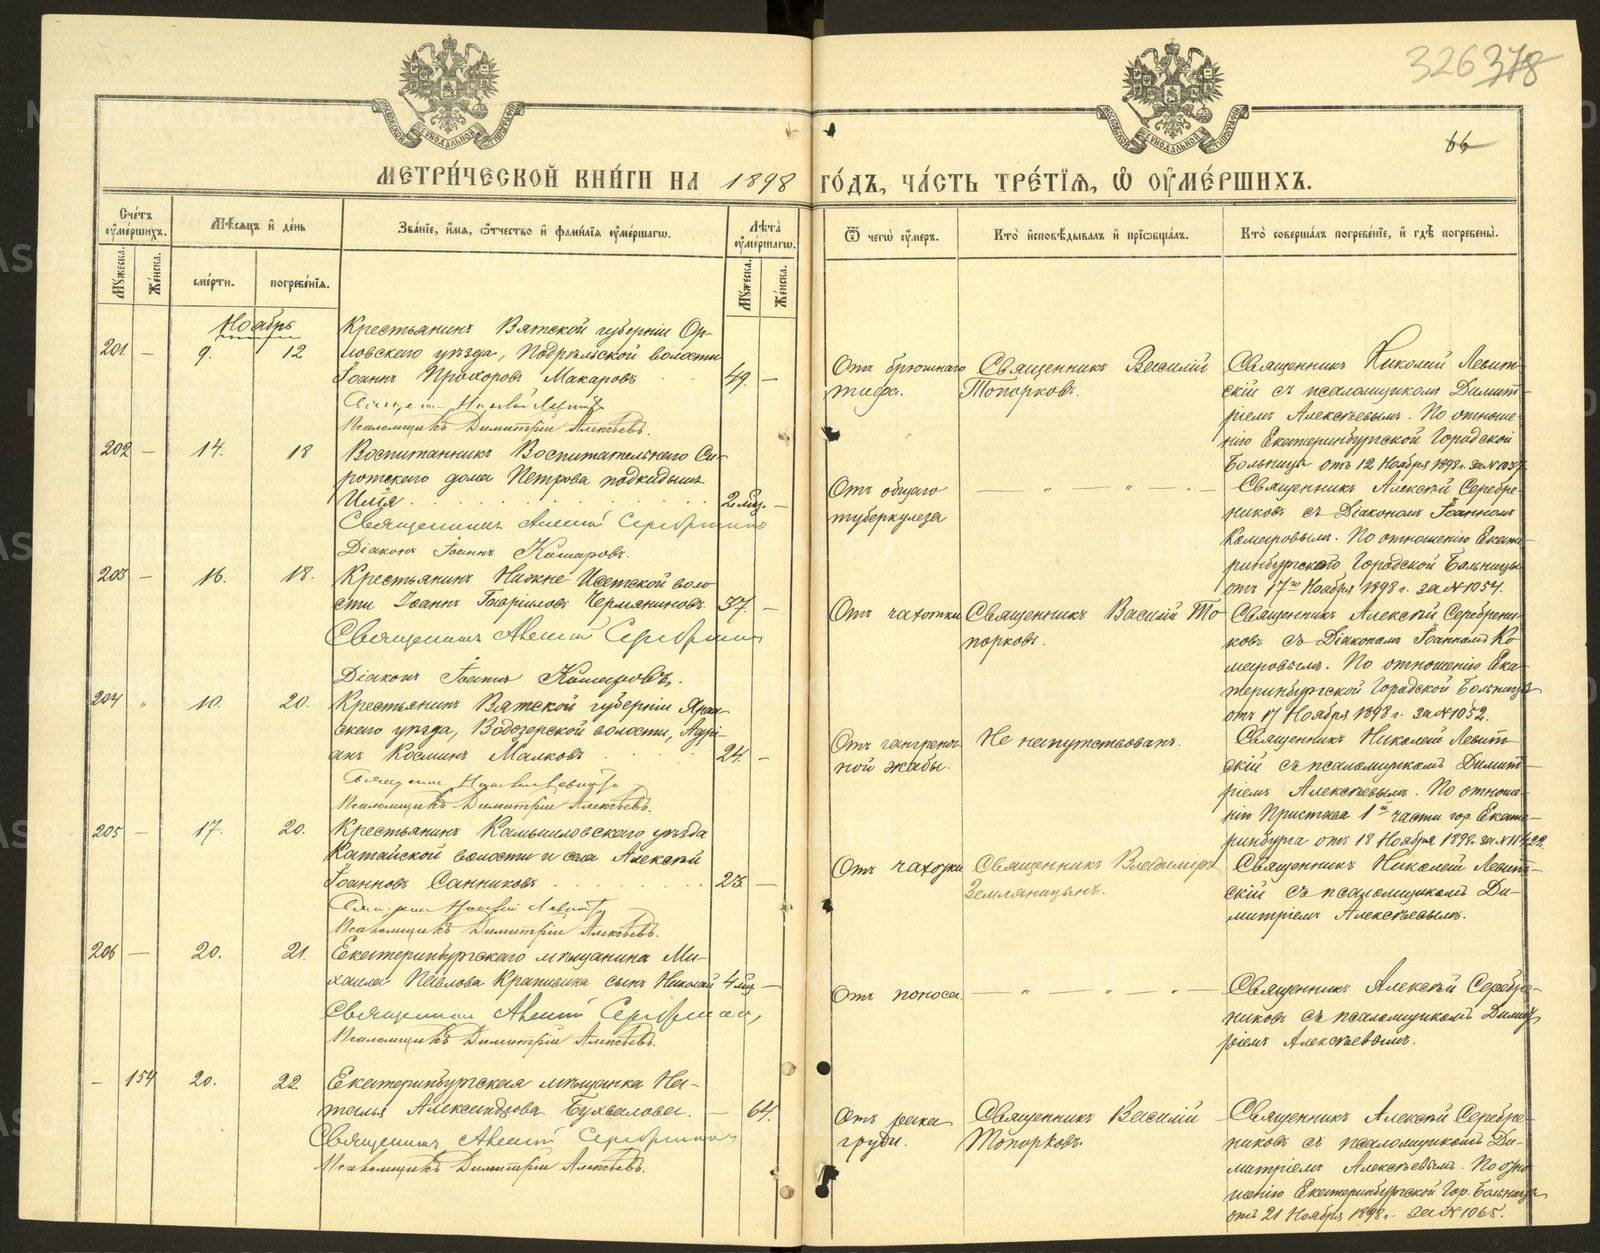 326 378
66
МЕТРИ́ЧЕСКОЙ КНИ́ГИ НА 1898 ГО́ДЪ, ЧА́СТЬ ТРЕ́ТІѦ, Ѡ҆ ОУ҆МЕ́РШИХЪ.
Сче́тъ оу҆ме́ршихъ.
Мѣ́сѧцъ и҆ де́нь
Зва́нїе, и҆́мѧ, ѻ҆́тчество и҆ фами́лїѧ оу҆ме́ршагѡ.
Лѣ́та оу҆ме́ршагѡ.
Ѿ чегѡ̀ оу҆́меръ.
Кто̀ и҆сповѣ́дывалъ и҆ прїѡбща́лъ.
Кто̀ соверша́лъ погребе́нїе, и҆ гдѣ̀ погребены̀.
Мꙋ́жеска.
Же́нска.
сме́рти.
погребе́нїѧ.
Мꙋ́жеска.
Же́нска.
Ноябрь
201 — 9. 12
Крестьянинъ Вятской губерніи Ор-
ловскаго уѣзда, Подрѣльской волости
Іоаннъ Прохоровъ Макаровъ 49. —
Священ. Николай Левитск
Псаломщикъ Димитрій Алексѣевъ.
Отъ брюшнаго
тифа.
Священникъ Василій
Топорковъ.
Священникъ Николай Левит-
скій съ псаломщикомъ Димит-
ріемъ Алексѣевымъ. По отноше-
нію Екатеринбургской Городской
Больницы отъ 12 Ноября 1898 г. за №1037.
202 — 14. 18
Воспитанникъ Воспитательнаго Си-
ротскаго дома Петрова подкидышъ
Илія 2 мѣс. —
Священникъ Алексій Серебренник
Діаконъ Іоаннъ Комаровъ.
Отъ общаго
туберкулеза
— „ — „ —
Священникъ Алексѣй Серебре-
никовъ съ Діакономъ Іоанномъ
Комаровымъ. По отношенію Екате-
ринбургской Городской Больницы
отъ 17го Ноября 1898 г. за №1054.
203 — 16. 18.
Крестьянинъ Нижне-Исетской воло
сти Іоаннъ Гавріиловъ Черманиновъ 37. —
Священникъ Алексій Серебренник
Діаконъ Іоаннъ Комаровъ.
Отъ чахотки
Священникъ Василій То
порковъ.
Священникъ Алексѣй Серебрени-
ковъ съ Діакономъ Іоанномъ Ко-
маровымъ. По отношенію Ека-
теринбургской Городской Больницы
отъ 17 Ноября 1898 г. за №1052.
204 „ 10. 20.
Крестьянинъ Вятской губерніи Яран-
скаго уѣзда, Водозерской волости, Адрі-
анъ Косминъ Малковъ 24. —
Священник Николай Левитск
Псаломщикъ Димитрій Алексѣевъ.
Отъ гангреноз-
ной жабы.
Не напутствованъ.
Священникъ Николай Левит-
скій съ псаломщикомъ Димит-
ріемъ Алексѣевымъ. По отноше-
нію Пристава 1й части гор. Екате-
ринбурга отъ 18 Ноября 1898 г. за №
205 — 17. 20.
Крестьянинъ Камышловскаго уѣзда
Катайской волости и села Алексѣй
Іоанновъ Санниковъ 23. —
Священник Николай Левитск
Псаломщикъ Димитрій Алексѣевъ.
Отъ чахотки
Священникъ Владиміръ
Земляницынъ.
Священникъ Николай Левит-
скій съ псаломщикомъ Ди-
митріемъ Алексѣевымъ.
206 — 20. 21.
Екатеринбургскаго мѣщанина Ми-
хаила Павлова Крапивина сынъ Николай 4 мѣс —
Священник Алексій Серебренник
Псаломщикъ Димитрій Алексѣевъ.
Отъ поноса.
— „ — „ — „ —
Священникъ Алексѣй Серебре-
никовъ съ псаломщикомъ Димит-
ріемъ Алексѣевымъ.
— 154 20. 22
Екатеринбургская мѣщанка На-
талья Александрова Бухвалова. — 64.
Священникъ Алексій Серебренник
Псаломщикъ Димитрій Алексѣевъ.
Отъ рака
груди.
Священникъ Василій
Топорковъ.
Священникъ Алексѣй Серебре-
никовъ съ псаломщикомъ Ди-
митріемъ Алексѣевымъ. По отно
шенію Екатеринбургской Гор. Больницы
отъ 21 Ноября 1898 г. за №1065.